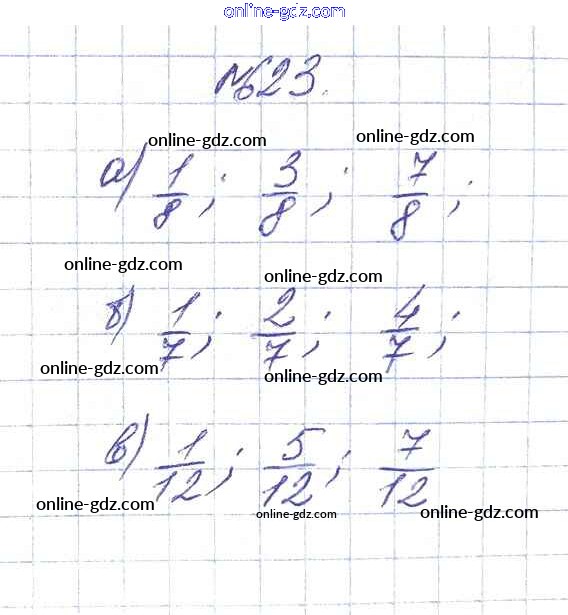 online-gdz.com
№23.
online-gdz.com online-gdz.com
а) 1/8; 3/8; 7/8;
online-gdz.com online-gdz.com
б) 1/7; 2/7; 4/7;
online-gdz.com online-gdz.com
в) 1/12; 5/12; 7/12
online-gdz.com online-gdz.com online-gdz.com